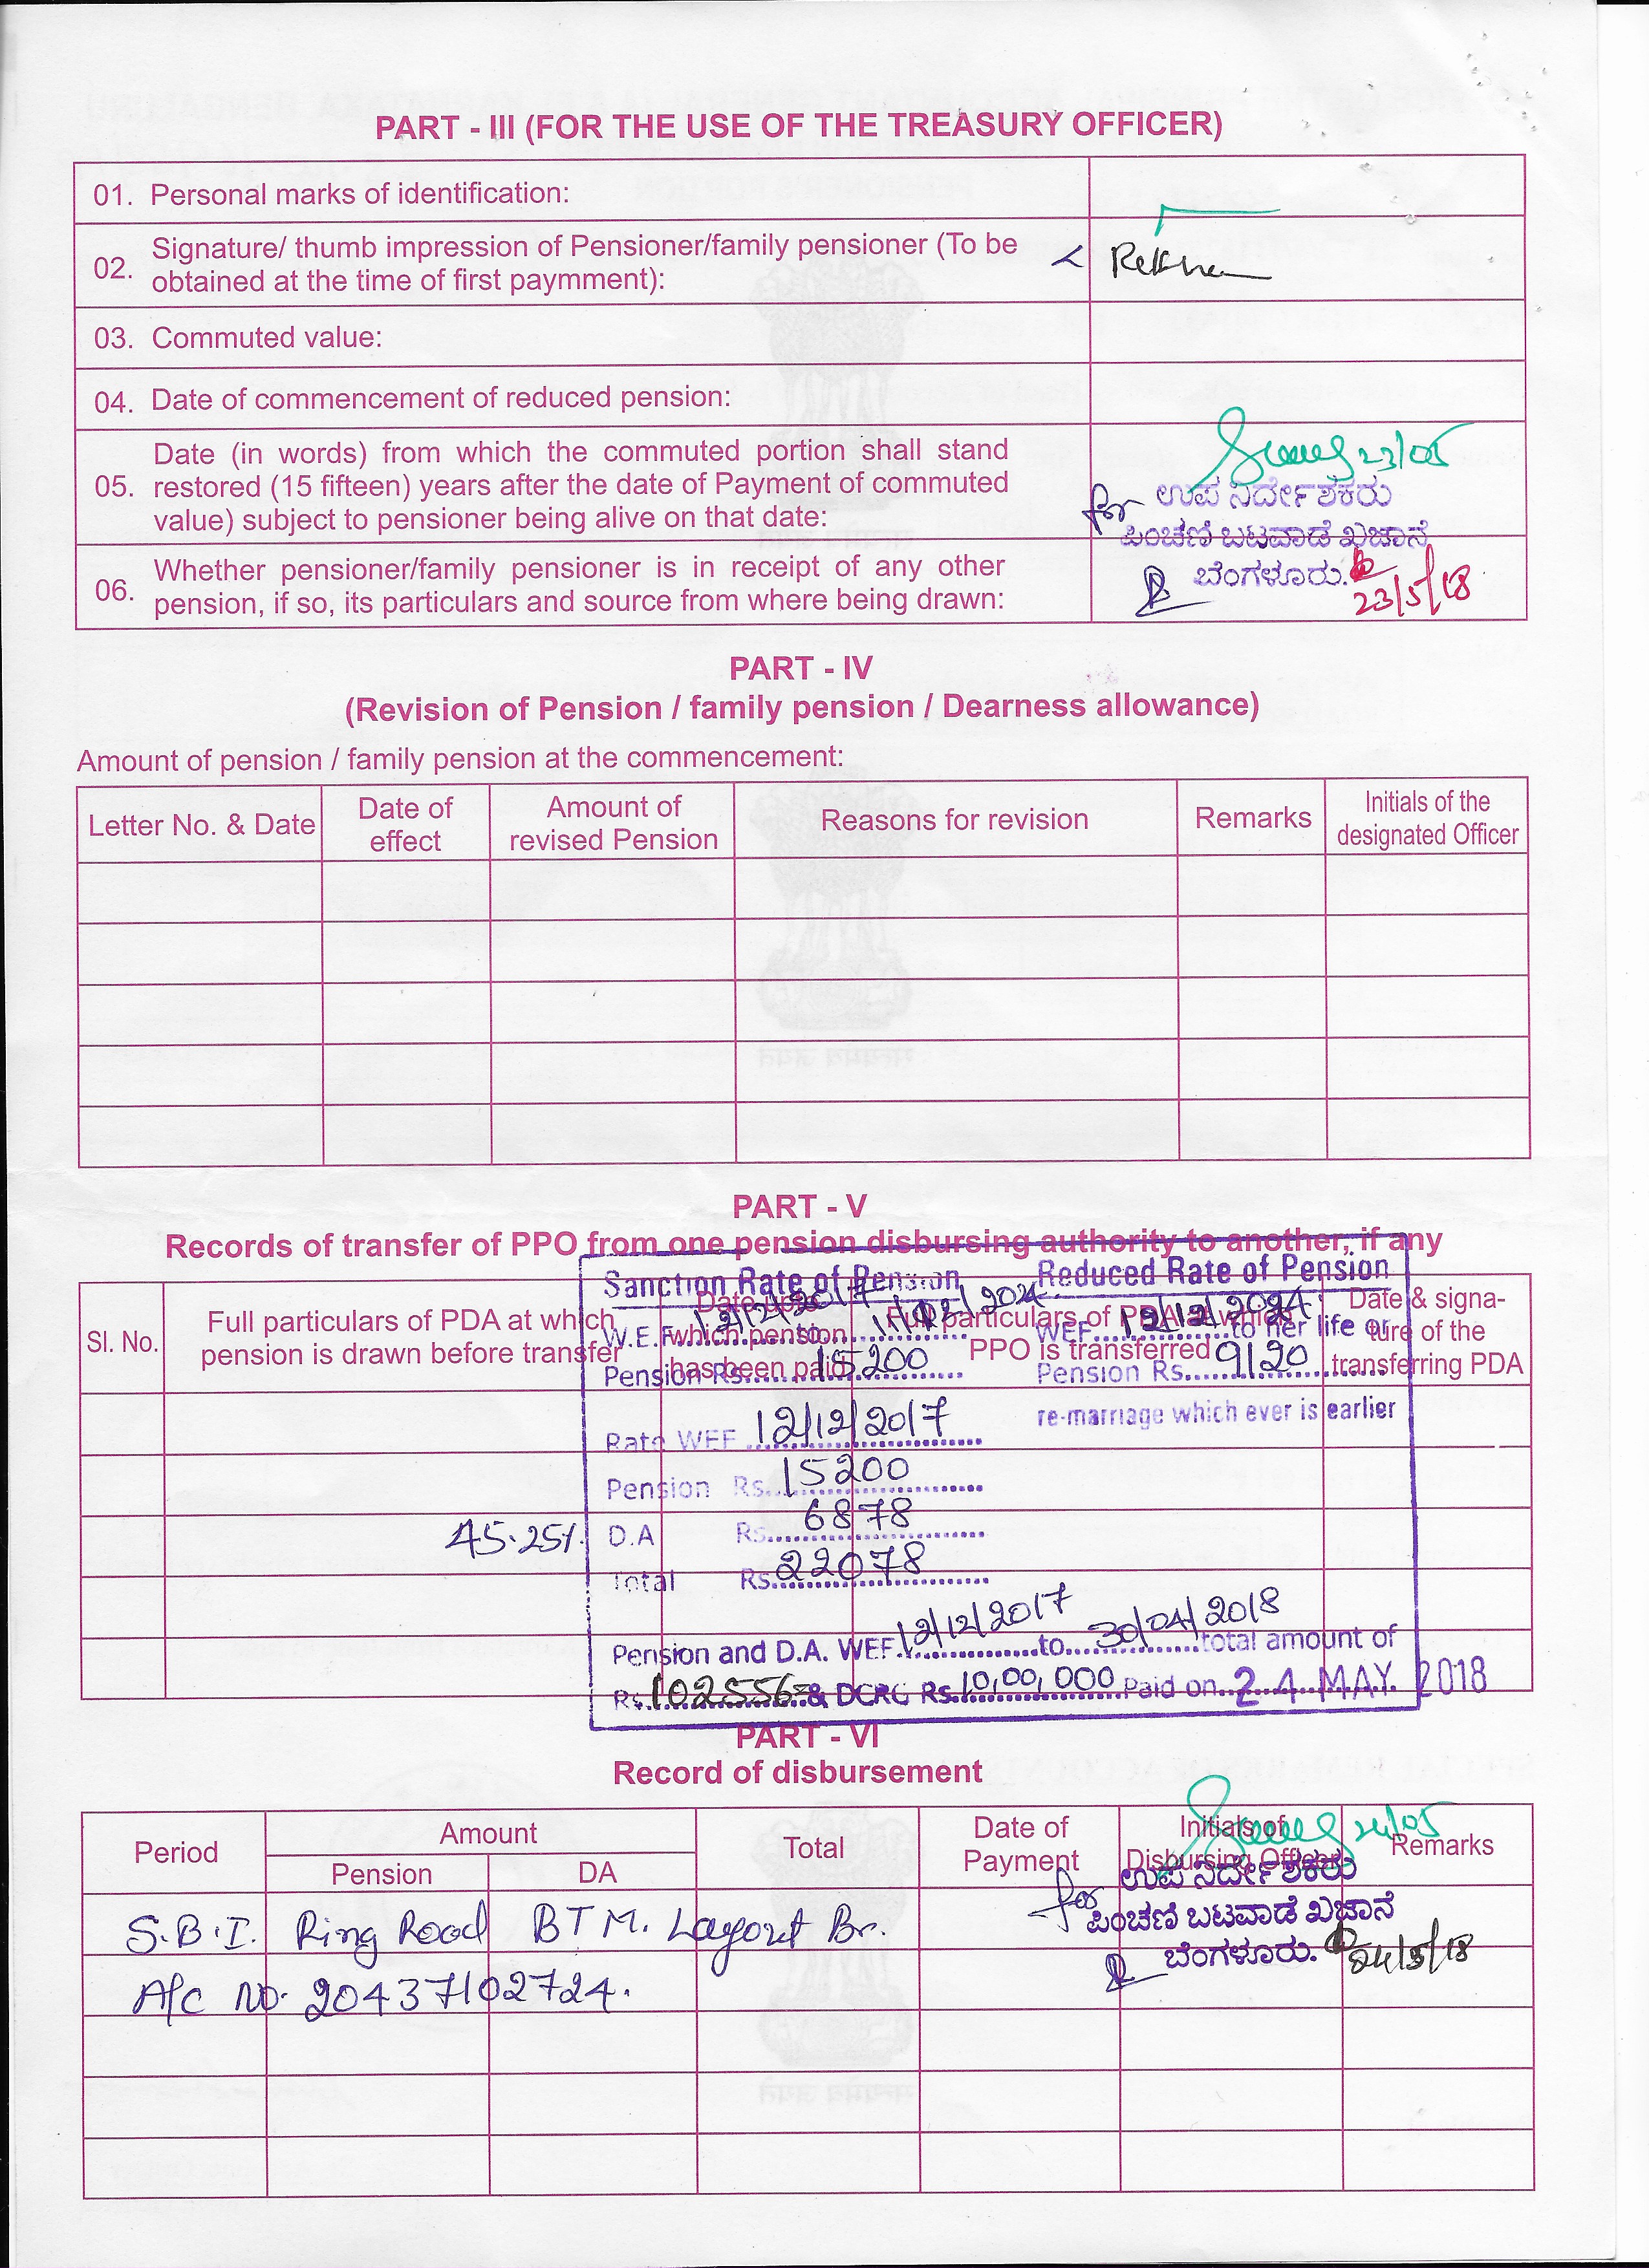 PART - III (FOR THE USE OF THE TREASURY OFFICER)
01. Personal marks of identification:
02. Signature/ thumb impression of Pensioner/family pensioner (To be
obtained at the time of first paymment):
Rekha
03. Commuted value:
04. Date of commencement of reduced pension:
05. Date (in words) from which the commuted portion shall stand
restored (15 fifteen) years after the date of Payment of commuted
value) subject to pensioner being alive on that date:
23/05
for ಉಪ ನಿರ್ದೇಶಕರು
ಪಿಂಚಣಿ ಬಟವಾಡೆ ಖಜಾನೆ
ಬೆಂಗಳೂರು.
23/5/18
06. Whether pensioner/family pensioner is in receipt of any other
pension, if so, its particulars and source from where being drawn:
PART - IV
(Revision of Pension / family pension / Dearness allowance)
Amount of pension / family pension at the commencement:
Letter No. & Date
Date of
effect
Amount of
revised Pension
Reasons for revision
Remarks
Initials of the
designated Officer
PART - V
Records of transfer of PPO from one pension disbursing authority to another, if any
Sl. No.
Full particulars of PDA at which
pension is drawn before transfer
Date upto
which pension
has been paid
Full particulars of PDA at which
PPO is transferred
Date & signa-
ture of the
transferring PDA
Sanction Rate of Pension
W.E.F. 12/12/2017 to 11/12/2024
Pension Rs. 15200
Reduced Rate of Pension
WEF 12/12/2024 to her life or
Pension Rs. 9120
re-marriage which ever is earlier
Rate WEF 12/12/2017
Pension Rs. 15200
45.25% D.A Rs. 6878
Total Rs. 22078
Pension and D.A. WEF. 12/12/2017 to 30/04/2018 total amount of
Rs. 102556 & DCRG Rs. 10,00,000 Paid on 24 MAY 2018
PART - VI
Record of disbursement
Period
Amount
Pension
DA
Total
Date of
Payment
Initials of
Disbursing Officer
Remarks
24/05
for ಉಪ ನಿರ್ದೇಶಕರು
ಪಿಂಚಣಿ ಬಟವಾಡೆ ಖಜಾನೆ
ಬೆಂಗಳೂರು.
24/5/18
S.B.I. Ring Road BTM. Layout Br.
A/c NO. 20437102724.